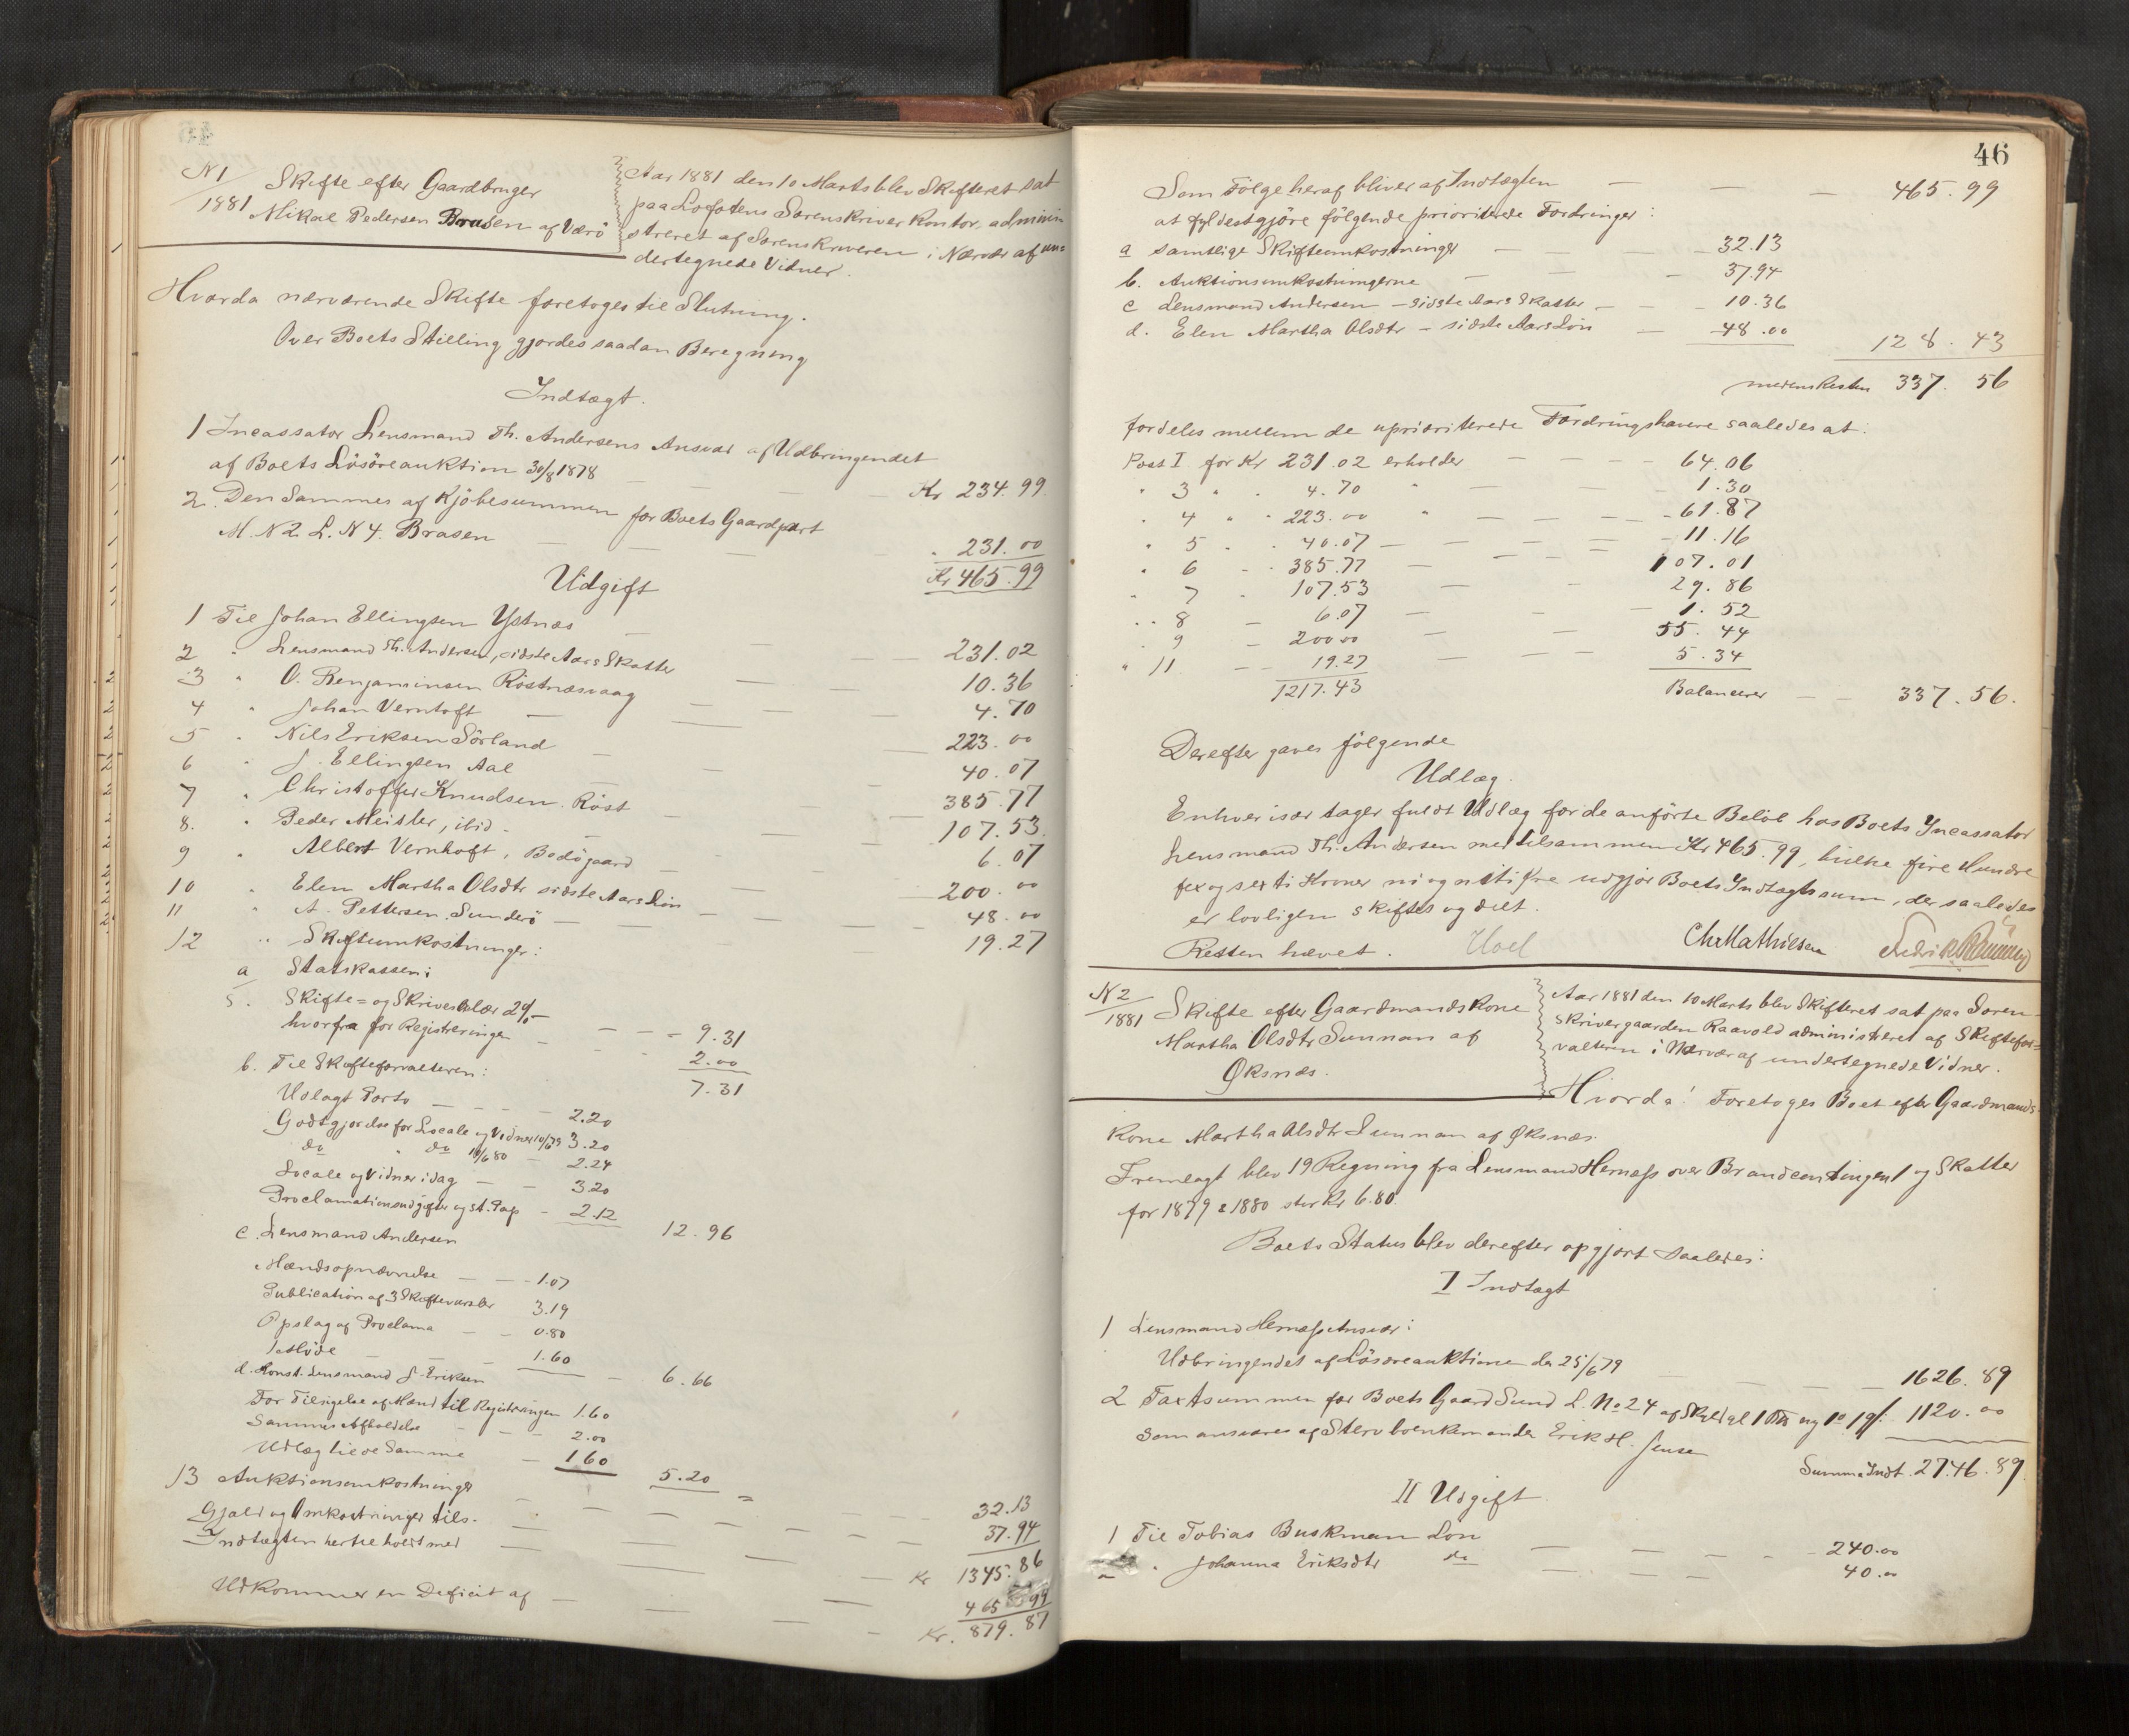 N 1
1881
Skifte efter Gaardbruger
Mikal Pedersen Brasen af Værö
Aar 1881 den 10 Marts blev Skifteret sat
paa Lofotens Sorenskriver Kontor, admini
streret af Sorenskriveren i Nærvær af un=
dertegnede Vidner.
Hvorda nærværende Skifte foretoges til Slutning.
Over Boets Stilling gjordes saadan Beregning
Indtægt.
1 Incassator Lensmand Th. Andersens Ansvar af Udbringendet
af Boets Lösöreauktion 30/8 1878 — — — Kr 234.99
2. Den Sammes af Kjöbesummen for Boets Gaardpart
M. N 2 L. N 4. Brasen — — — " 231.00
Kr 465.99
Udgift
1 Til Johan Ellingsen Ystnæs — — — 231.02
2 " Lensmand Th. Andersen, sidste Aars Skatter — — 10.36
3 " O. Benjaminsen Röstnæsvaag — — — 4.70
4 " Johan Verntoft — — — 223.00
5 " Nils Eriksen Sörland — — 40.07
6 " J. Ellingsen Aal — — 385.77
7 " Christoffer Knudsen Röst — — 107.53
8. " Peder Meisler, ibid — — 6.07
9 " Albert Vernhoft, Bodögaard — — 200.00
10 " Elen Martha Olsdtr sidste Aars Lön — — 48.00
11 " A. Pettersen Sunderö — — 19.27
12 " Skifteumkostninger:
a Statskassen:
Skifte= og Skrivesalær 2% — — — 9.31
hvorfra for Registreringen — — 2.00
7.31
b. Til Skifteforvalteren:
Udlagt Porto — — — 2.20
Godtgjorelse for Locale og Vidner 10/6 79 3.20
do " do 10/6 80 — 2.24
Locale og Vidner idag — — 3.20
Proclamationsudgifter og st. Pap — 2.12
12.96
c. Lensmand Andersen
Mændsopnævnelse — — 1.07
Publication af 3 Skiftevarsler 3.19
Opslag af Proclama — — 0.80
1 Möde — — 1.60
6.66
d. Konst. Lensmand J. Eriksen
For Tilsigelse af Mænd til Registreringen 1.60
Sammes Afholdelse — — 2.00
Udlæg til de Samme — 1.60
5.20 = 32.13
13 Auktionsomkostninger — — — 37.94
Gjæld og Omkostninger tils. — — — Kr 1345.86
Indtægten hertil holdt med — — — 465 99
Udkommer en Deficit af — — — Kr. 879.87
46
Som Fölge heraf bliver af Indtægten — — — 465.99
at fyldestgjöre fölgende prioriterede Fordringer:
a samtlige Skifteumkostninger — — — 32.13
b. Auktionsumkostningerne — — — 37.94
c Lensmand Andersen — sidste Aars Skatter — — 10.36
d. Elen Martha Olsdtr — sidste Aars Lön — 48.00
128.43
medens Resten 337.56
fordeles mellem de uprioriterede Fordringshavere saaledes at:
Post I for Kr 231.02 erholder — — — 64.06
" 3 " " 4.70 " — — 1.30
" 4 " " 223.00 " — — — 61.87
" 5 " " 40.07 — — — 11.16
" 6 " " 385.77 — — — 107.01
" 7 " 107.53 — — 29.86
" " 8 — 6.07 — — 1.52
" 9 — 200.00 — — 55.44
" 11 — — 19.27 — — — 5.34
1217.43 Balancerer — — 337.56.
Derefter gaves fölgende
Udlæg.
Enhver især tager fuldt Udlæg for de anförte Belöb hos Boets Incassator
Lensmand Th. Andersen med tilsammen Kr 465.99, hvilke fire Hundre
fem og sexti Kroner ni og nitti Öre udgjör Boets Indtægtssum, der saaledes
er lovligen skiftet og delt.
Retten hævet. Hoel Chr Mathiesen Fredrik
N 2
1881
Skifte efter Gaardmandskone
Martha Olsdtr Sunnan af
Øksnæs.
Aar 1881 den 10 Marts blev Skifteret sat paa Soren
skrivergaarden Raavold administreret af Skiftefor=
valteren i Nærvær af undertegnede Vidner.
Hvorda! Foretoges Boet efter Gaardmands
kone Martha Olsdtr Sunnan af Øksnæs.
Fremlagt blev 19 Regning fra Lensmand Hernæss over Brandcontingent og Skatter
for 1879 & 1880 stor Kr 6.80.
Boets Status blev derefter opgjort saaledes:
I Indtægt
1 Lensmand Hernæss Ansvar:
Udbringendet af Lösöreauktionen den 25/6 79 — — — 1626.89
2 Taxtsummen for Boets Gaard Sund L. No 24 af Skyld 1 og 19 1120.00
som ansvares af Stervboenkemanden Erik H. Jensen
Summa Indt. 2746.89.
II Udgift
1 Til Tobias Buskman Lön — — — 240.00
" Johanna Eriksdtr do — — — 40.00